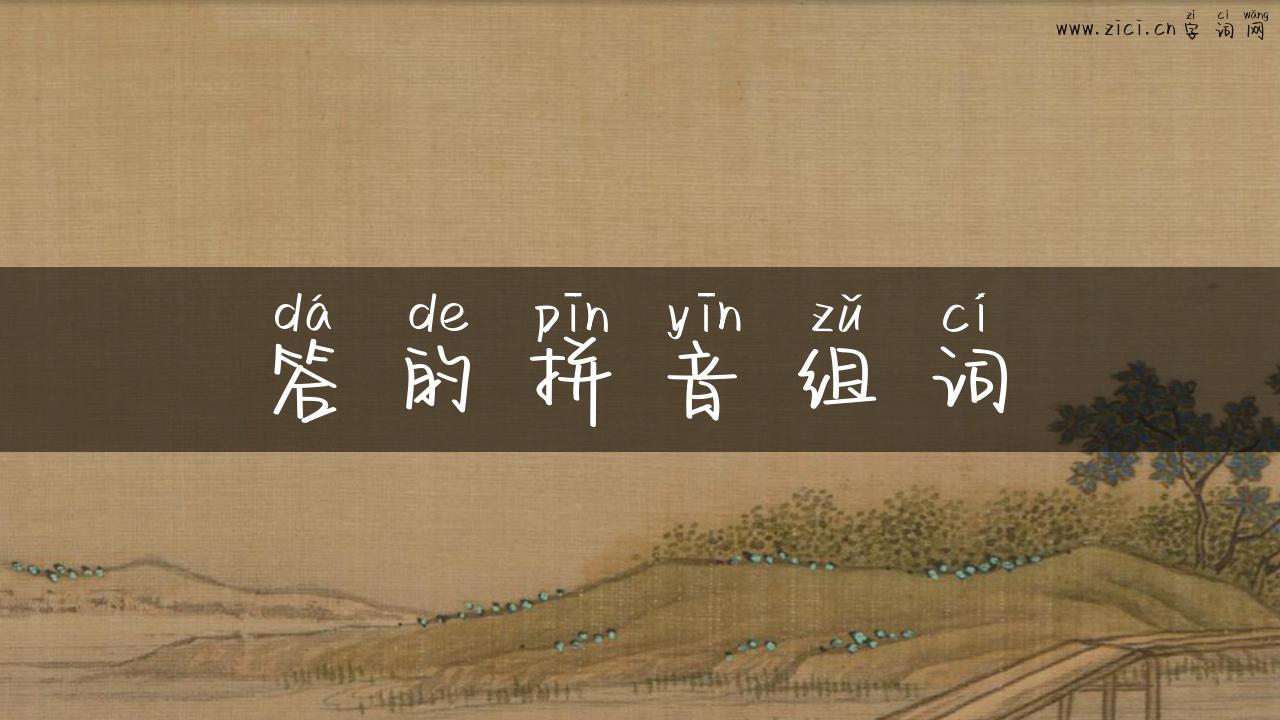 zì cí wǎng
www.zici.cn字词网
dá de pīn yīn zǔ cí
答的拼音组词